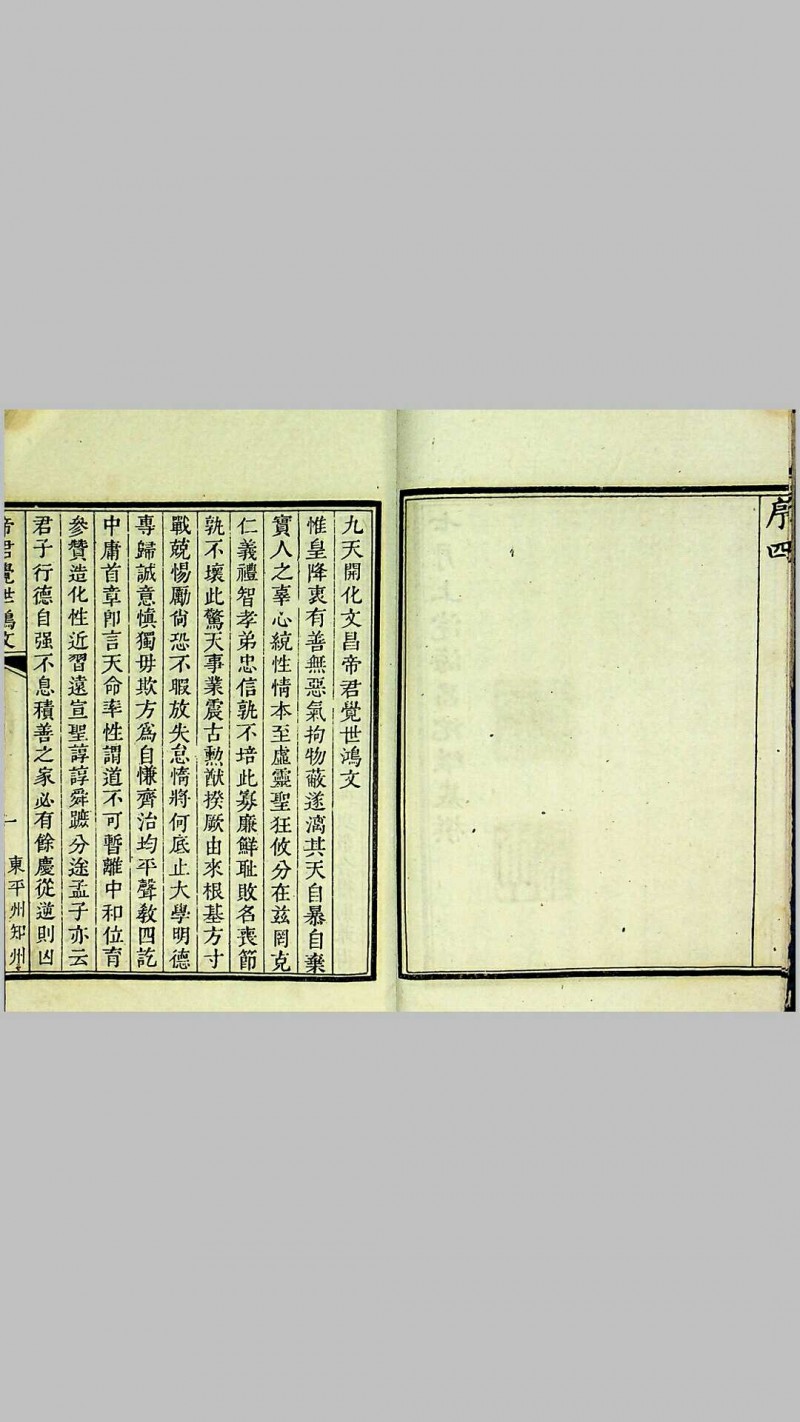 序四
九天開化文昌帝君覺世鴻文
惟皇降衷有善無惡氣拘物蔽遂漓其天自暴自棄
實人之辜心統性情本至虛靈聖狂攸分在兹罔克
仁義禮智孝弟忠信孰不培此寡廉鮮耻敗名喪節
孰不壞此驚天事業震古勲猷揆厥由來根基方寸
戰兢惕勵尙恐不暇放失怠惰將何底止大學明德
專歸誠意慎獨毋欺方爲自慊齊治均平聲敎四訖
中庸首章卽言天命率性謂道不可暫離中和位育
參贊造化性近習遠宣聖諄諄舜蹠分途孟子亦云
君子行德自强不息積善之家必有餘慶從逆則凶
帝君覺世鴻文
一
東平州知州